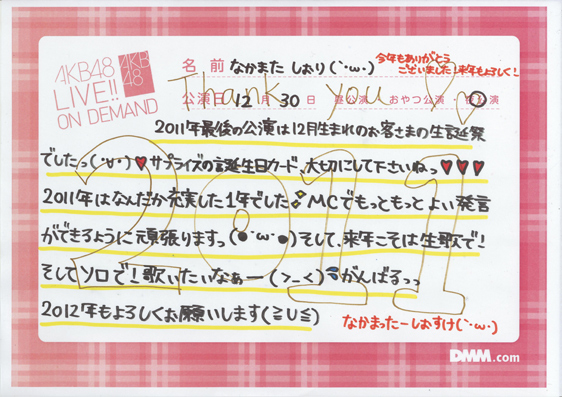 AKB48
LIVE!!
ON DEMAND
AKB
48
名前 なかまた しおり(`・ω・)
今年もありがとう
ございました!来年もよろしく!
Thank you
公演日 12月 30日 昼公演 おやつ公演 夜公演
2011年最後の公演は12月生まれのお客さまの生誕祭
でしたっ(・∀・)♥サプライズの誕生日カード、大切にして下さいねっ♥♥♥
2011年はなんだか充実した1年でした MCでもっともっとよい発言
ができるように頑張りますっ(●・ω・●)そして、来年こそは生歌で!
そしてソロで!歌いたいなぁー(>_<)がんばるっっ
2012年もよろしくお願いします(≧∪≦)
2011
なかまったーしおすけ(`・ω・)
DMM.com